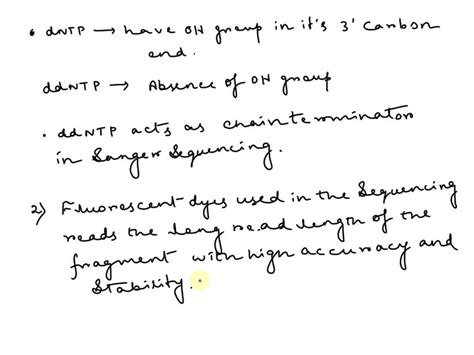 • dNTP → have OH group in it's 3' carbon
end.
ddNTP → Absence of OH group
• ddNTP acts as chainterminator
in Sanger Sequencing.
2) Fluorescent dyes used in the Sequencing
reads the long read length of the
fragment with high accuracy and
Stability.